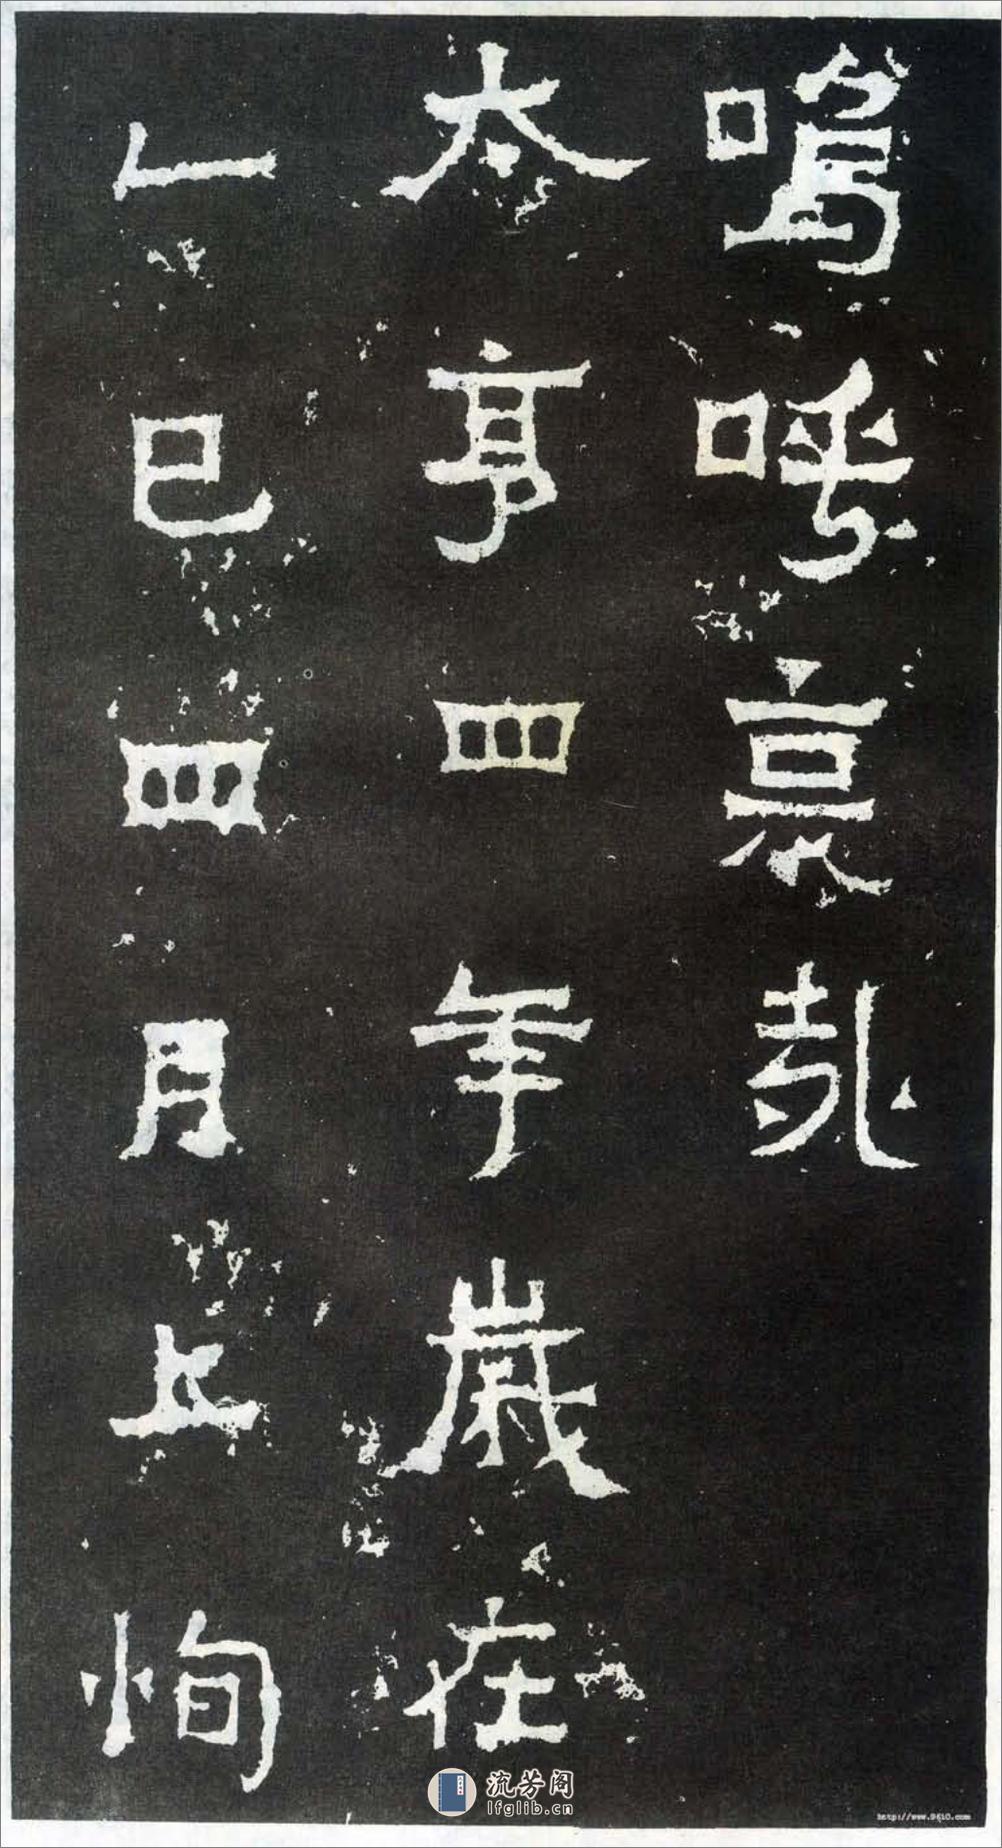 嗚呼哀哉
太亨四年歲在
乙巳四月上恂
流芳阁
lfglib.cn
http://www.9610.com